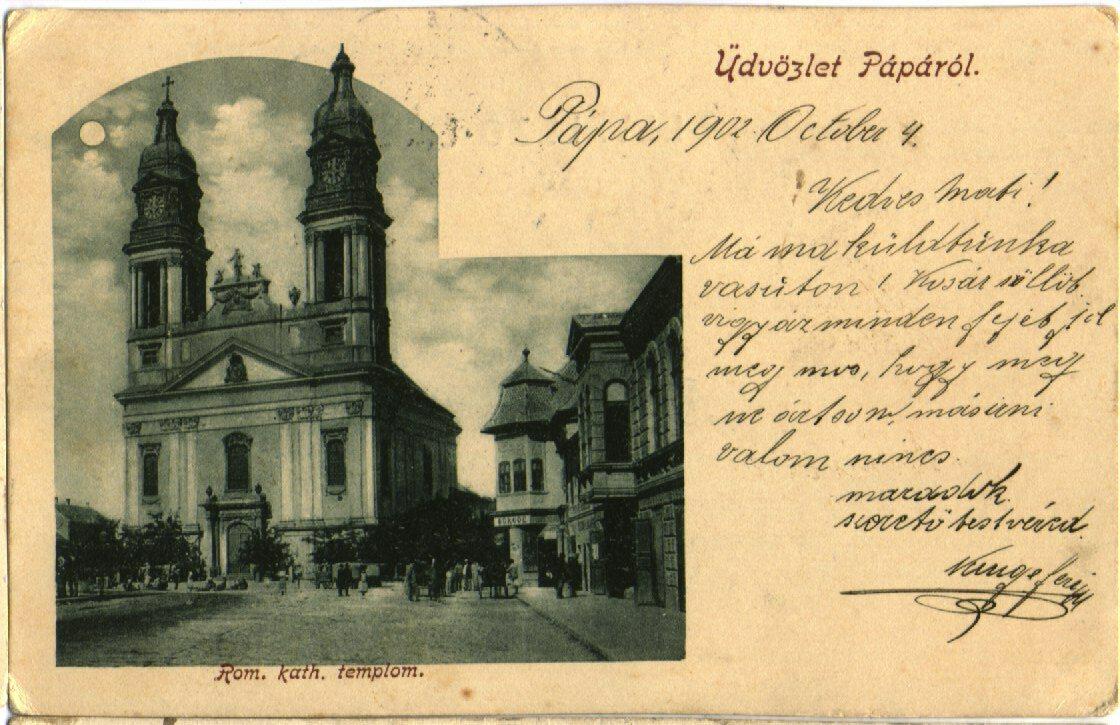 Üdvözlet Pápáról.
Pápa, 1902 October 4.
Kedves Mati!
Má ma küldtünka
vasúton! Kosár söllöt
vigyáz minden fejét jól
meg mos, hogy meg
ne ártson, más
valom nincs.
maradok
szerető testvéred
Rom. kath. templom.